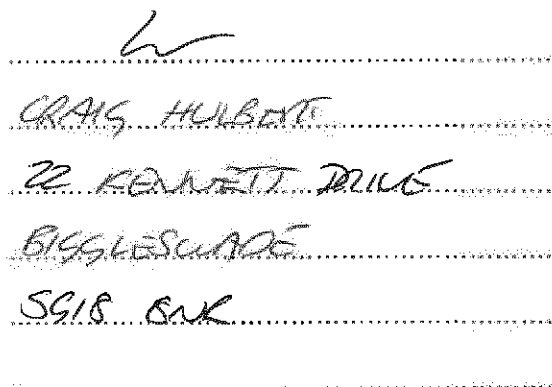 CRAIG HULBERT
22 KENNETT DRIVE
BIGGLESWADE
SG18 8NR